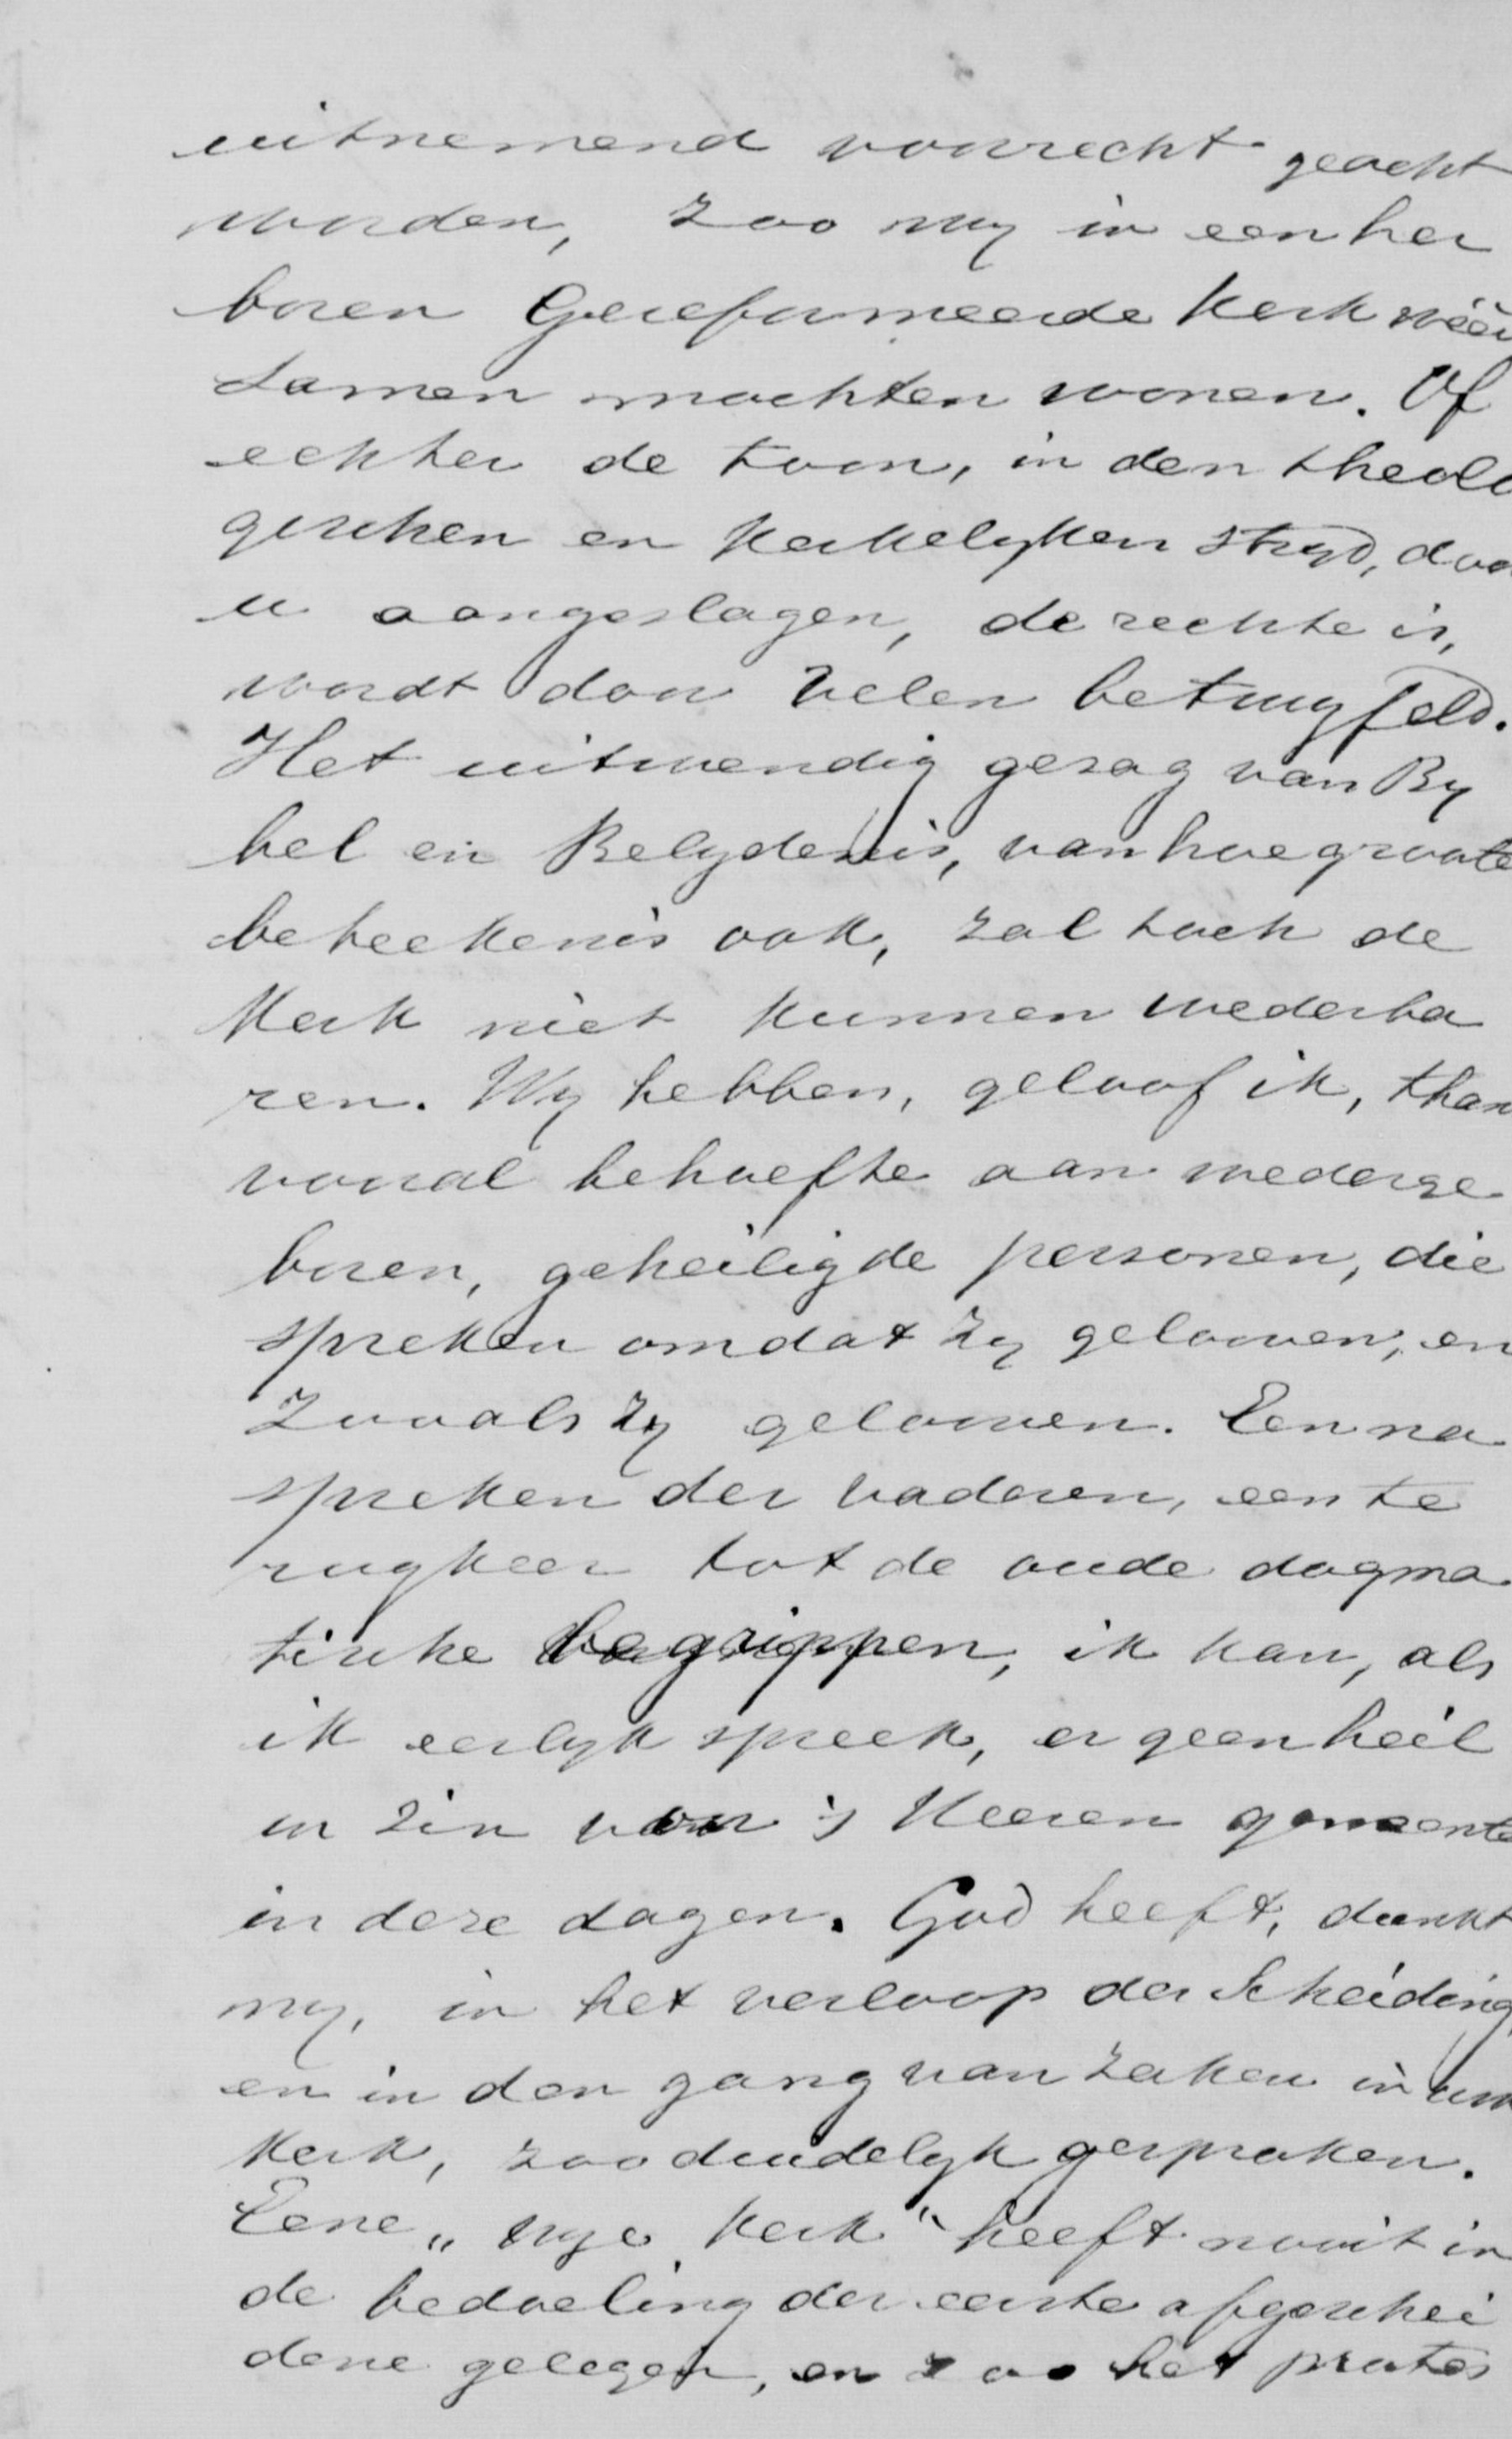 uitnemend voorrecht geacht
worden, zoo wy in een her
boren Gereformeerde Kerk wéér
samen mochten wonen. Of
echter de toon, in den theolo
gischen en Kerkelyken stryd, door
u aangeslagen, de rechte is,
wordt door velen betwyfeld.
Het uitwendig gezag van By
bel en Belydenis, van hoe groote
beteekenis ook, zal toch de
Kerk niet kunnen wederba
ren. Wy hebben, geloof ik, thans
vooral behoefte aan wederge
boren, geheiligde personen, die
spreken omdat zy gelooven, en
zooals zy gelooven. Een na
spreken der vaderen, een te
rugkeer tot de oude dogma
tische begrippen, ik kan, als
ik eerlyk spreek, er geen heil
in zien voor 's Heeren gemeente
in deze dagen. God heeft, dunkt
my, in het verloop der Scheiding,
en in den gang van zaken in uw
Kerk, zoo duidelyk gesproken.
Eene „vrye Kerk“ heeft nooit in
de bedoeling der eerste afgeschei
dene gelegen, en zoo het protes